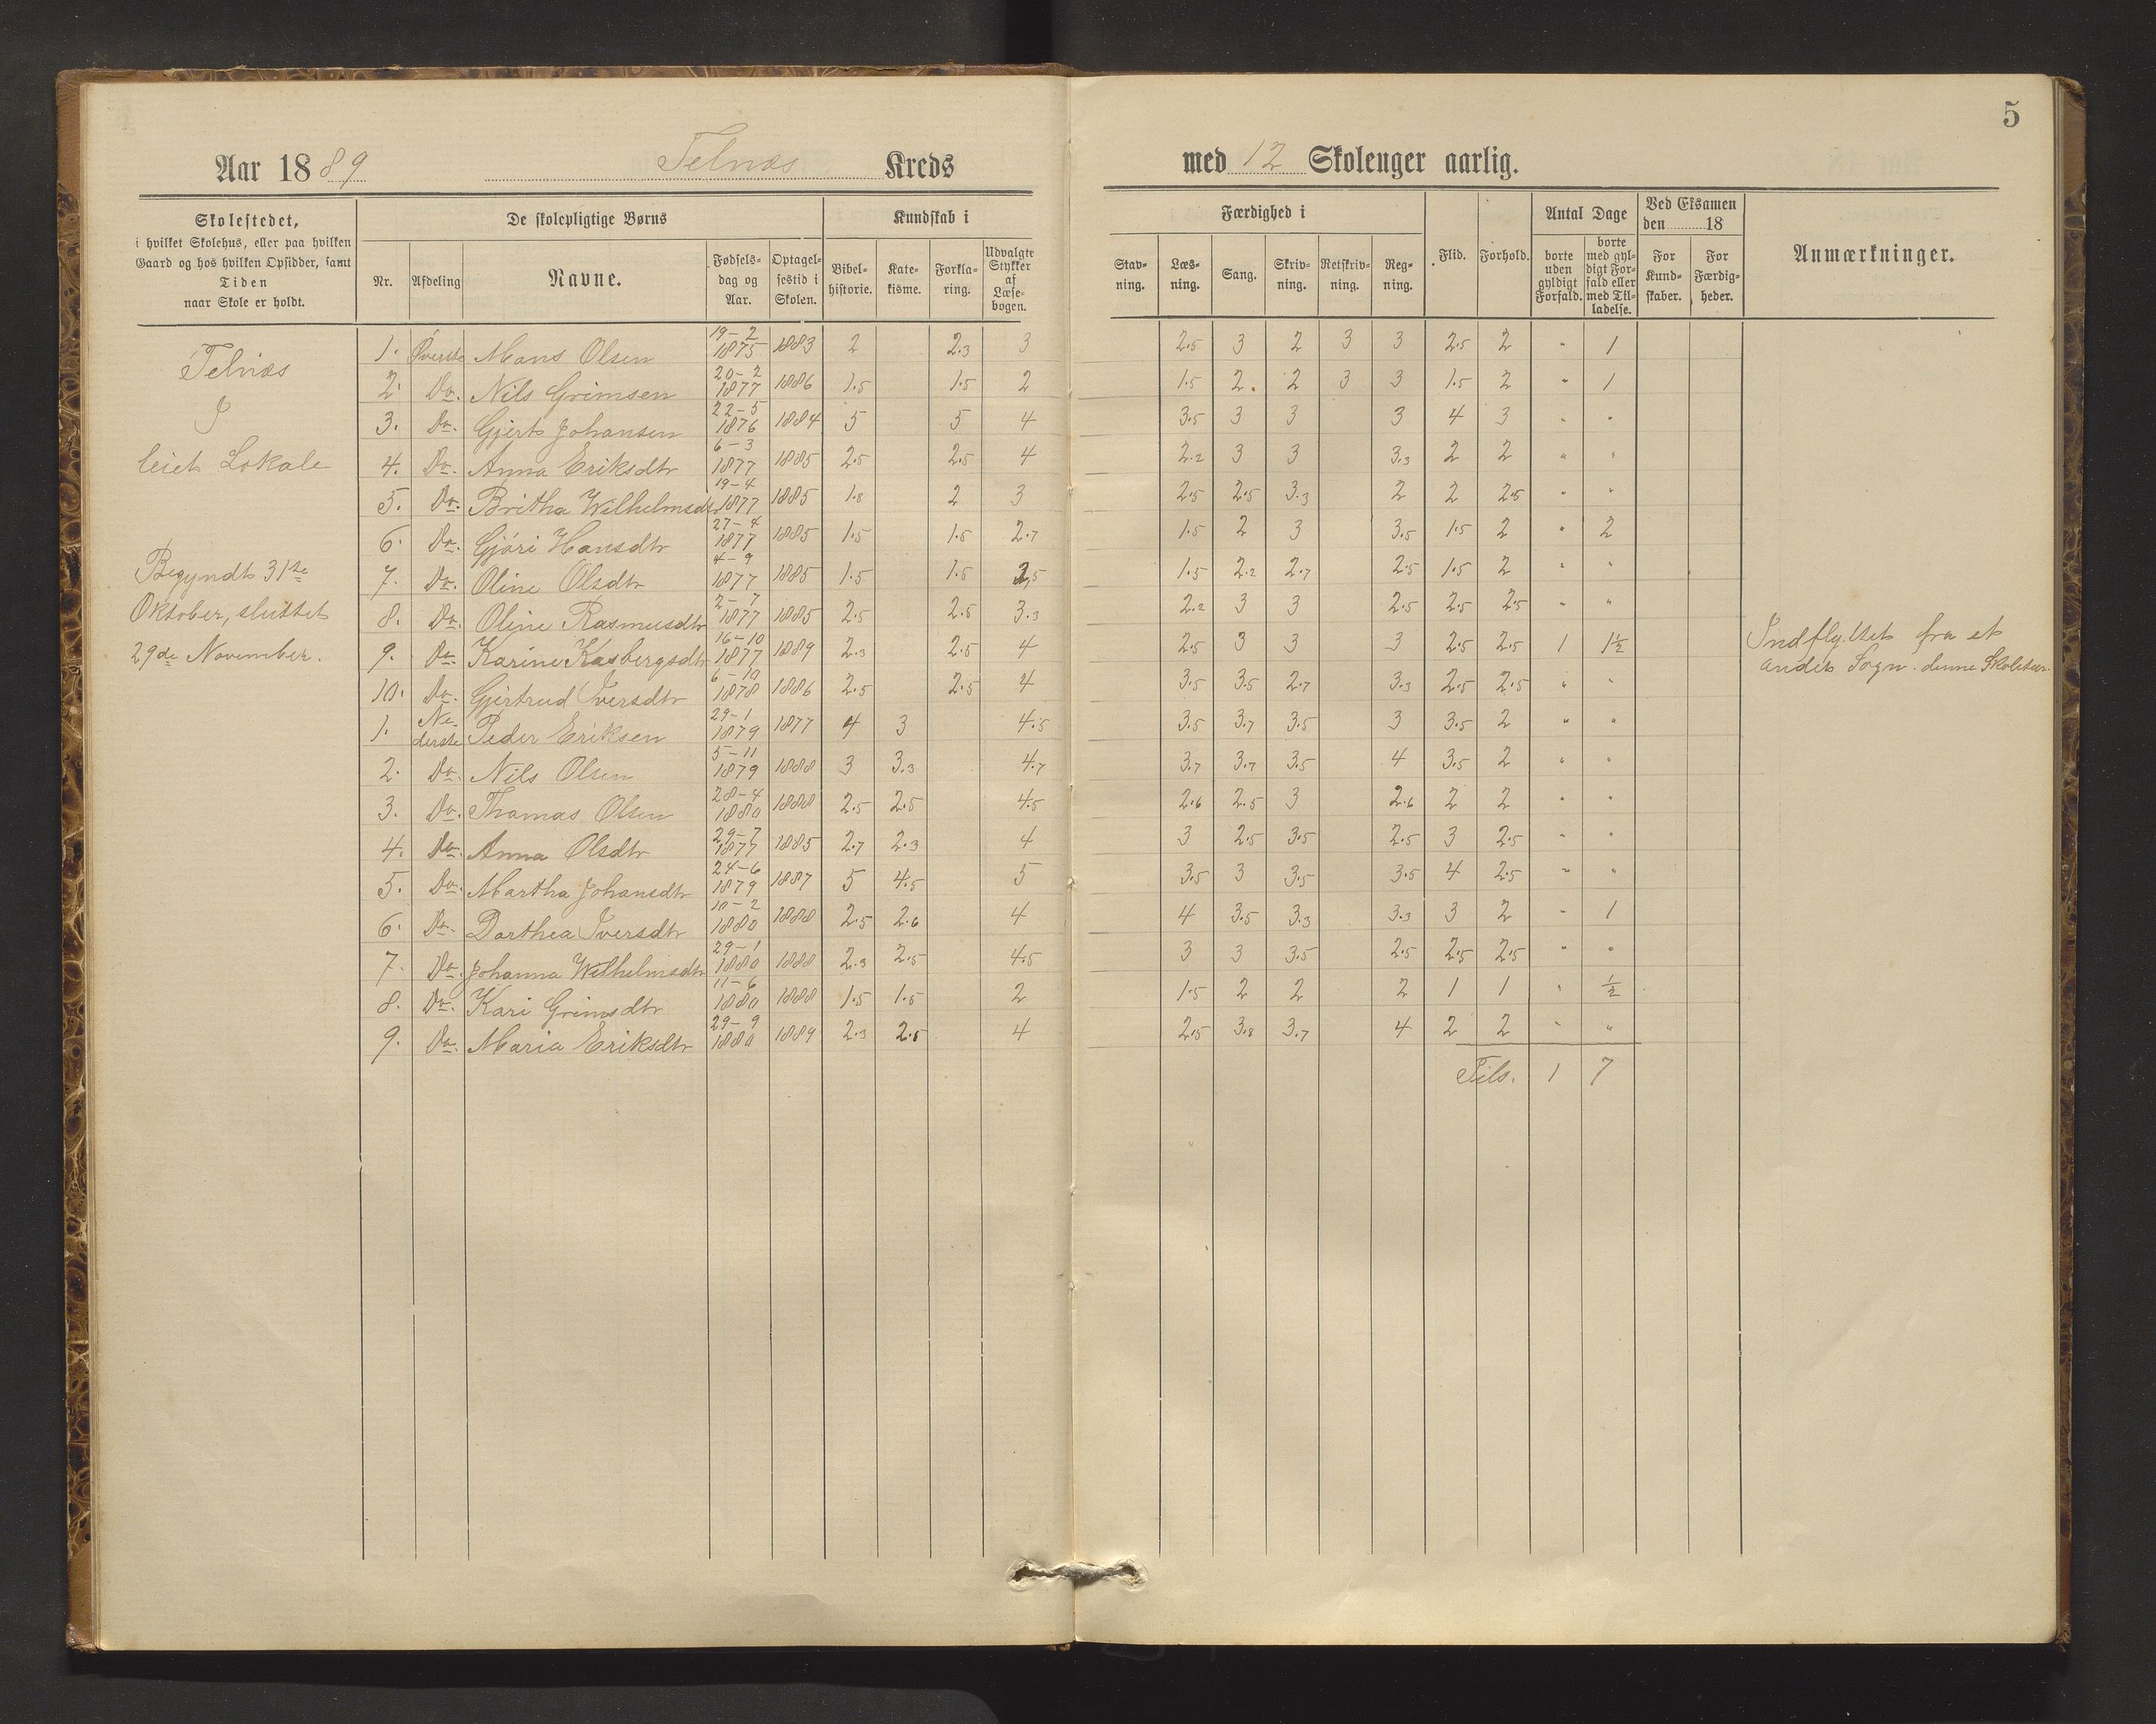 5
Aar 1889 Telnæs Kreds med 12 Skoleuger aarlig.
Skolestedet, i hvilket Skolehus, eller paa hvilken Gaard og hos hvilken Opsidder, samt Tiden naar Skole er holdt.
De skolepligtige Børns
Nr. Afdeling Navne. Fødsels-dag og Aar. Optagel-sestid i Skolen.
Kundskab i
Bibel-historie. Kate-kisme. Forkla-ring. Udvalgte Stykker af Læse-bogen.
Færdighed i
Stav-ning. Læs-ning. Sang. Skriv-ning. Retskriv-ning. Reg-ning.
Flid. Forhold.
Antal Dage
borte uden gyldigt Forfald. borte med gyl-digt For-fald eller med Til-ladelse.
Ved Eksamen den 18
For Kund-skaber. For Færdig-heder.
Anmærkninger.
Telnæs
I
leiet Lokale
Begyndt 31te
Oktober, sluttet
29de November.
1. Øverste Mons Olsen 19-2 1875 1883 2 2.3 3 2.5 3 2 3 3 2.5 2 " 1
2. Do. Nils Grimsen 20-2 1877 1886 1.5 1.5 2 1.5 2. 2 3 3 1.5 2 " 1
3. Do. Gjert Johansen 22-5 1876 1884 5 5 4 3.5 3 3 3 4 3 " "
4. Do. Anna Eriksdtr 6-3 1877 1885 2.5 2.5 4 2.2 3 3 3.3 2 2 " "
5. Do. Britha Wilhelmsdtr 19-4 1877 1885 1.8 2 3 2.5 2.5 3.3 2 2 2.5 " "
6. Do. Gjøri Hansdtr 27-4 1877 1885 1.5 1.5 2.7 1.5 2 3 3.5 1.5 2 " 2
7. Do. Oline Olsdtr 4-9 1877 1885 1.5 1.5 2,5 1.5 2.2 2.7 2.5 1.5 2 " "
8. Do. Oline Rasmusdtr 2-7 1877 1885 2.5 2.5 3.3 2.2 3 3 2.5 2.5 2.5 " "
9. Do. Karine Kasbergsdtr 16-10 1877 1889 2.3 2.5 4 2.5 3 3 3 2.5 2.5 1 1½ Indflyttet fra et
andet Sogn denne Skoletur.
10. Do. Gjertrud Iversdtr 6-10 1878 1886 2.5 2.5 4 3.5 3.5 2.7 3.3 2.5 2.5 " "
1. Ne-derste Peder Eriksen 29-1 1879 1877 4 3 4.5 3.5 3.7 3.5 3 3.5 2 " "
2. Do. Nils Olsen 5-11 1879 1888 3 3.3 4.7 3.7 3.7 3.5 4 3.5 2 " "
3. Do. Thomas Olsen 28-4 1880 1888 2.5 2.5 4.5 2.6 2.5 3 2.6 2 2 " "
4. Do. Anna Olsdtr 29-7 1877 1885 2.7 2.3 4 3 2.5 3.5 2.5 3 2.5 " "
5. Do. Martha Johansdtr 24-6 1879 1887 5 4.5 5 3.5 3 3.5 3.5 4 2.5 " "
6. Do. Dorthea Iversdtr 10-2 1880 1888 2.5 2.6 4 4 3.5 3.3 3.3 3 2 " 1
7. Do. Johanna Wilhelmsdtr 29-1 1880 1888 2.3 2.5 4.5 3 3 3.5 2.5 2.5 2.5 " "
8. Do. Kari Grimsdtr 11-6 1880 1888 1.5 1.5 2 1.5 2 2 2 1 1 " ½
9. Do. Maria Eriksdtr 29-9 1880 1889 2.3 2.5 4 2.5 3.8 3.7 4 2 2 " "
Tils. 1 7